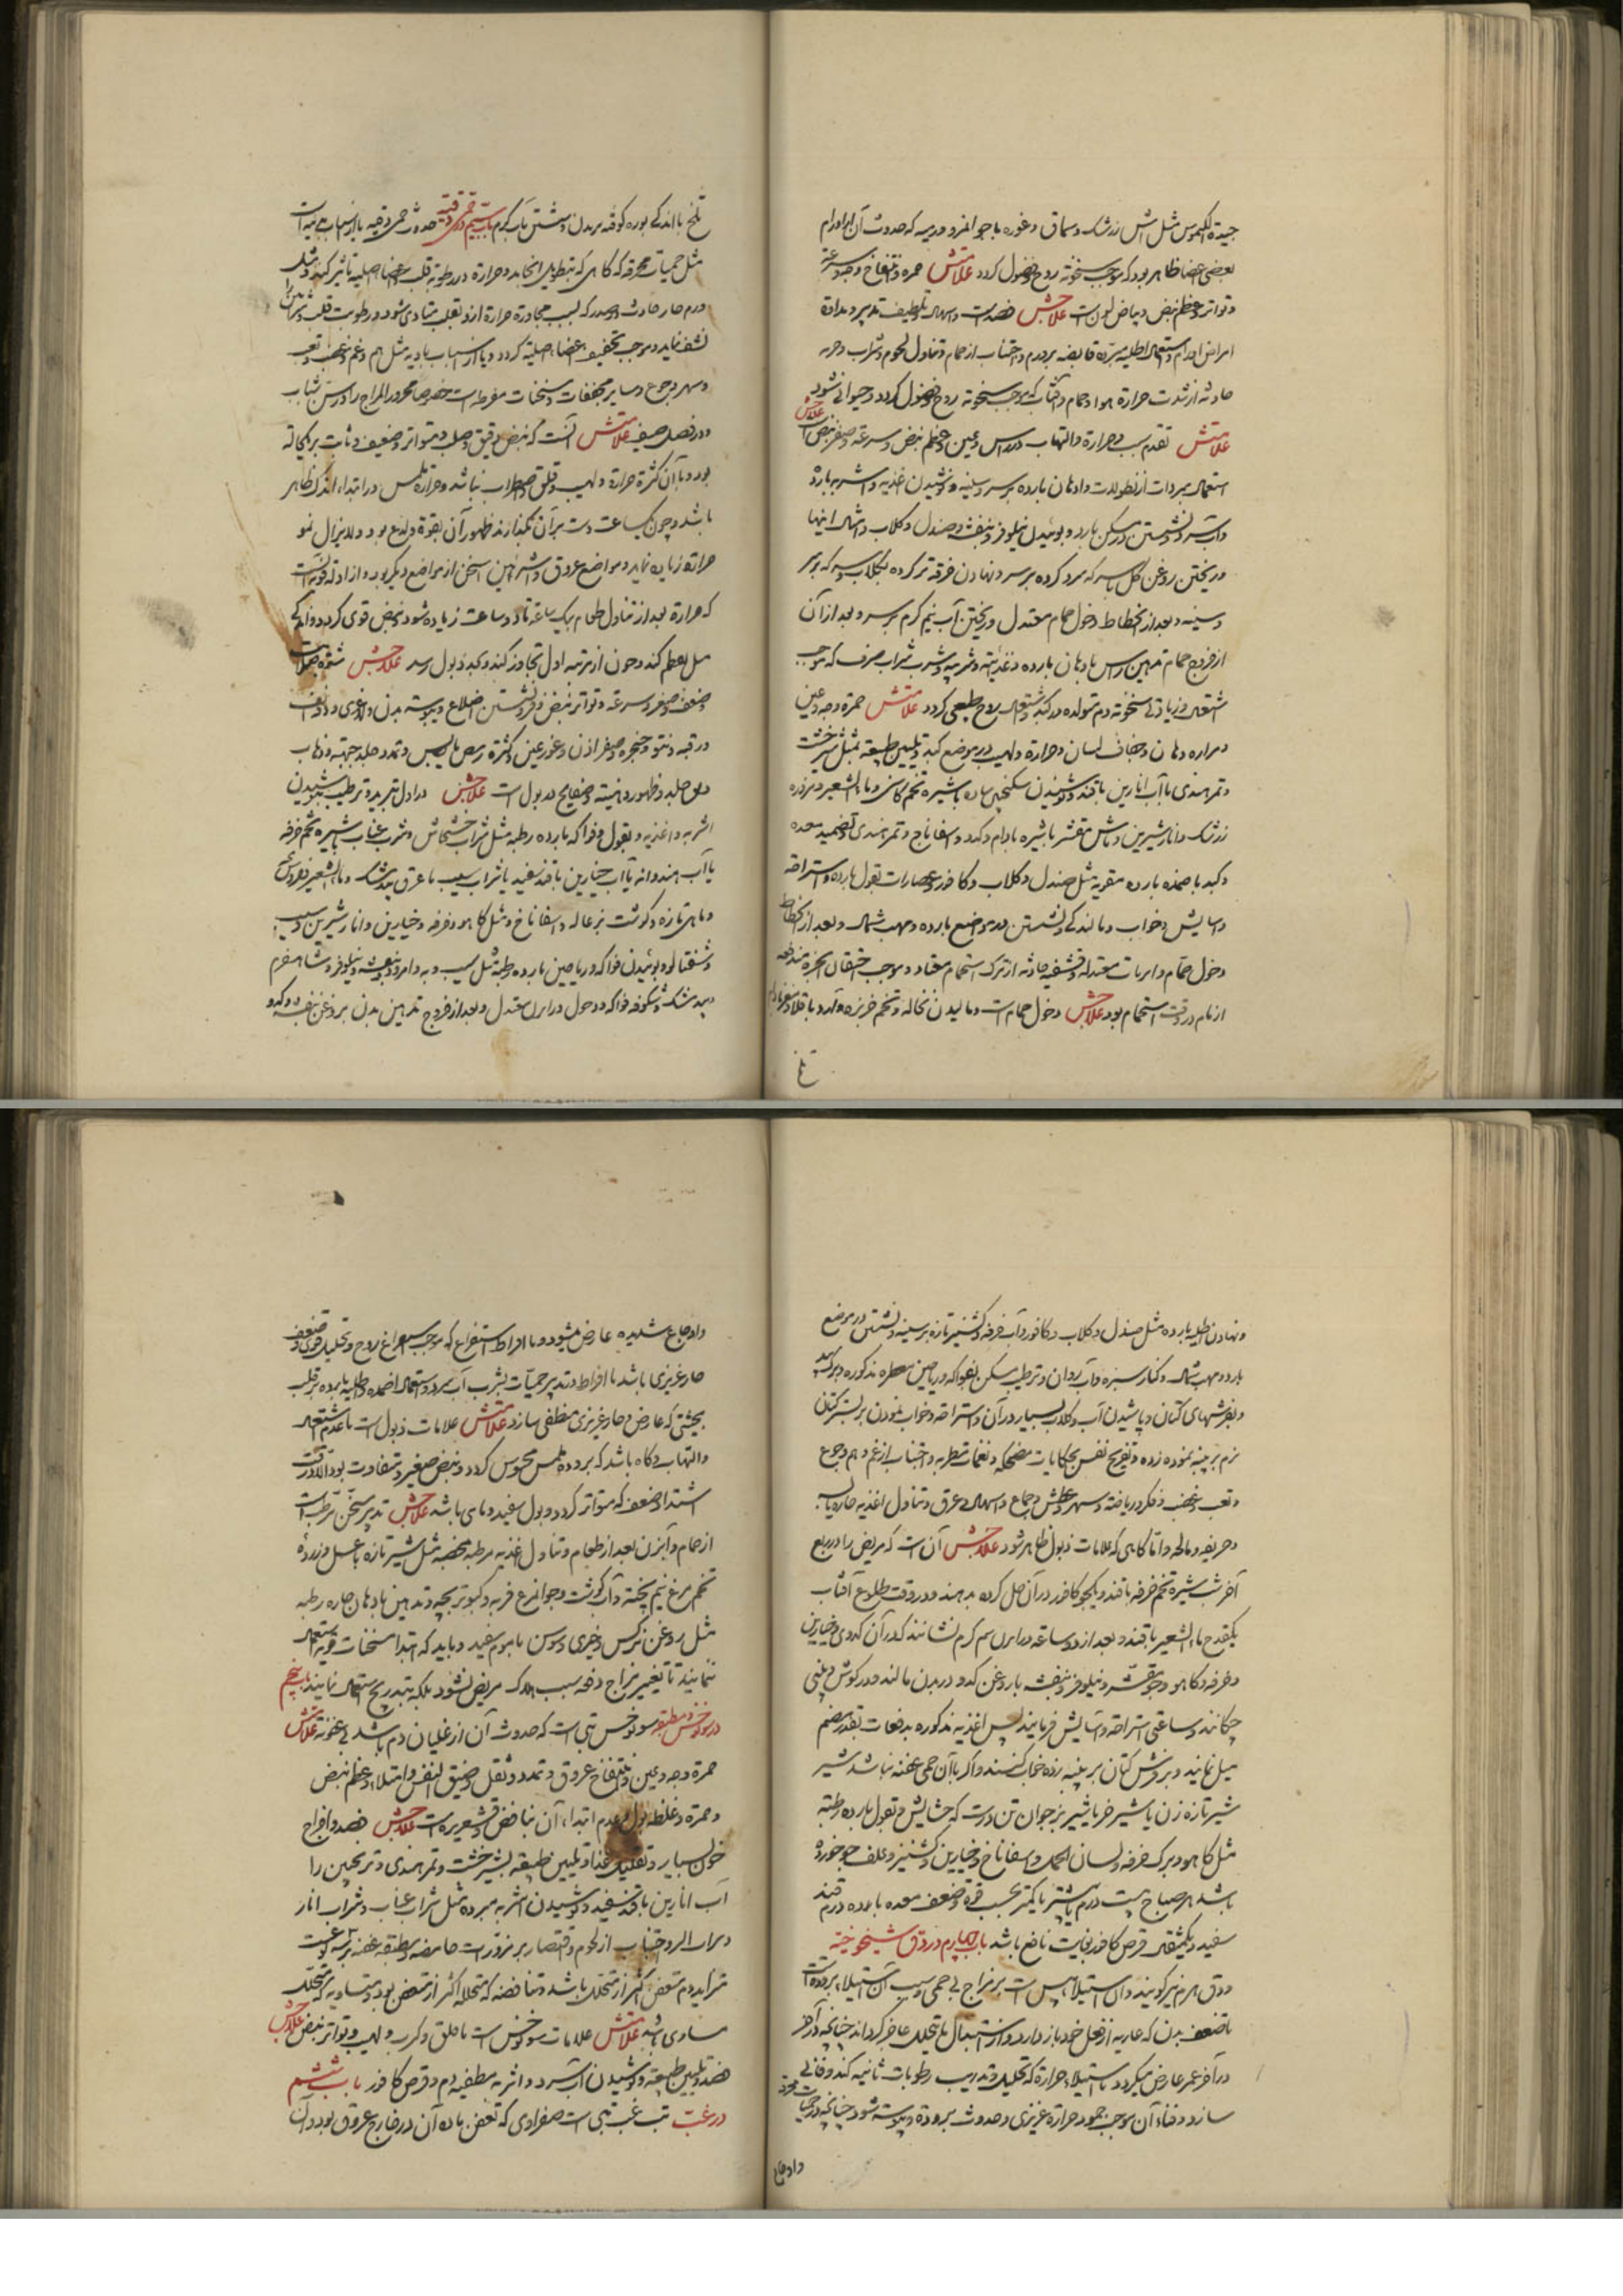 جیدة الکیموس مثل آش زرشک و سماق و غوره با جوانمرد و رمیه که حدوث آن از اورام
بعضی اعضا ظاهر بود که موجب سخونة روح و فضول کردد علامتش حمره و انتفاخ وجه و سرعة
و تواتر و عظم نبض و بیاض بول است علاجش فصد است و اسهال و تلطیف تدبیر و مداواة
امراض اورام و استعمال اطلیه مبرده قابضه بر ورم و اجتناب از حمام و تناول لحوم و شراب و حربه
حادثه از شدت حرارة هوا و حمام و آفتاب که موجب سخونة روح و فضول کردد و حیوانی نشود
علامتش تقدم سبب و حرارة و التهاب در راس و عین و عظم نبض و سرعة و صغر نبض علاجش
استعمال مبردات از نطولات و ادهان بارده بر سر و سینه و نوشیدن اغذیه و اشربه بارده
و آب سرد و نشستن در مسکن بارد و بوئیدن نیلوفر و بنفشه و صندل و کلاب و امثال اینها
و ریختن روغن کل با سرکه سرد کرده بر سر و نهادن خرقه تر کرده بکلاب و سرکه بر سر
و سینه و بعد از انحطاط دخول حمام معتدل و ریختن آب نیم کرم بر سر و بعد از آن
از خروج حمام تدهین راس بادهان بارده و غذائیه و شربیه و شرب شراب صرف که موجب
اشتعال و زیادتی سخونة دم متولده در کبد و اشتعال روح طبیعی کردد علامتش حمرة وجه و عین
و مراره دهان و جفاف لسان و حرارة و لهیب در موضع کبد و تلیین طبیعة بمثل شیرخشت
و تمر هندی با آب انارین با قند و نوشیدن سکنجبین ساده با شیره تخم کاسنی و ماء الشعیر و مزوره
زرشک و انار شیرین و ماش مقشر با شیره بادام و کدو و اسفاناج و تمر هندی و تضمید معده
و کبد باضمده بارده مقویه مثل صندل و کلاب و کافور و عصارات بقول بارده و استراحة
و آسایش و خواب و مالندکی و نشستن در مواضع بارده و مهب شمال و بعد از انحطاط
دخول حمام و ابزنات معتدله و قشفیه حادثه از ترک استحمام معتاد و موجب احتقان ابخره مندفعه
از مسام در وقت استحمام بود علاجش دخول حمام است و مالیدن نخاله و تخم خربزه و آرد باقلا و مغز بادام
تلخ
تلخ با اندکی بوره کوفته بر بدن و شستن بآب کرم باب سیم در حمی دقیه حدوث حمی دقیه یا از اسباب بدنیه است
مثل حمیات محرقه که کاهی که بتطویل انجامد و حرارة در رطوبة قلب و اعضا اصلیه تاثیر کند و مثل
ورم حار حادث در صدر که بسبب مجاورة حرارة از و بقلب متادی شود و رطوبت قلب و شرائین را
نشف نماید و موجب تجفیف اعضاء اصلیه کردد و یا از اسباب بادیه مثل هم و غم و غضب و تعب
و سهر و جوع و سایر مجففات و مسخنات مفرطه است خصوصا محرور المزاج را در سن شباب
و در فصل صیف علامتش آنست که نبض دقیق و صلب و متواتر و ضعیف و ثابت بر یک حاله
بود و با آن کثرة حرارة و لهیب و قلق و اضطراب نباشد و حرارة ملمس در ابتداء اندک ظاهر
باشد و چون یکساعت دست بر آن بکذارند ظهور آن بقوة و لذع بود و لایزال نمو
حرارة زیاده نماید و مواضع عروق و شرائین اسخن از مواضع دیکر بود و از ادله قویه آنست
که حرارة بعد از تناول طعام بیک ساعة تا دو ساعة زیاده شود و نبض قوی کردد و اندکی
میل بعظم کند و چون از مرتبه اول تجاوز کند و بحد ذبول رسد علامتش شدة صلابت
و ضعف و صغر و سرعة و تواتر نبض و فرو نشستن اضلاع و یبوسة بدن و لاغری و دقة انف
و رقبه و نتو حنجره و صغر اذن و غور عین و کثرة رمص یابس و تمدد جلد جبهة و ذهاب
رونق جلد و ظهور دهنیه و صفایح در بول است علاجش در اول تبرید و ترطیب بنوشیدن
اشربه و اغذیه و بقول و فواکه بارده رطبه مثل شراب خشخاش و شراب عناب با شیره تخم خرفه
یا آب هندوانه یا آب خیارین با قند سفید یا شراب سیب با عرق بیدمشک و ماء الشعیر و فلوس
و ماهی تازه و کوشت بزغاله و اسفاناخ و مثل کاهو و خرفه و خیارین و انار شیرین و سیب
و شفتالو و بوئیدن فواکه و ریاحین بارده رطبة مثل سیب و به و امرود و بنفشه و نیلوفر و شاهسفرم
و بیدمشک و شکوفه فواکه و دخول در ابزن معتدل و بعد از خروج تدهین بدن بروغن بنفشه و کدو
و نهادن اطلیه بارده مثل صندل و کلاب و کافور و آب خرفه و کشنیز تازه بر سینه و نشستن در موضع
بارد و مهب شمال و کنار سبزه و آب روان و ترطیب مسکن بفواکه و ریاحین معطره مذکوره و برک بید
و بفرشهای کتان و پاشیدن آب و کلاب بسیار در آن و استراحة و خواب نمودن بر بستر کتان
نرم بر پنبه نموده زده و تفریح نفس بحکایات مضحکه و نغمات مطربه و اجتناب از غم و هم و جوع
و تعب و غضب و فکر و ریاضة و سهر و عطش و جماع و اسهال و عرق و تناول اغذیه حاره یابسه
و حریفه و مالحه و اما کاهی که علامات ذبول ظاهر شود علاجش آن است که مریض را در ربع
آخر شب شیره تخم خرفه با قند و یک جو کافور در آن حل کرده بدهند و در وقت طلوع آفتاب
یکقدح ماء الشعیر با قند و بعد از دو ساعة در ابزن نیم کرم نشانند که در آن کدوی و خیارین
و خرفه و کاهو و جو مقشر و نیلوفر و بنفشه با روغن کدو در بدن مالند و در کوش و بینی
چکانند و ساعتی استراحة و آسایش فرمایند پس اغذیه مذکوره بدفعات بقدر هضم
میل نمایند و بر فرش کتان بر پنبه زده خواب کنند و اکر با آن حمی عفنه نباشد شیر
شیر تازه زن یا شیر خر یا شیر بز جوان تن درست که حشایش و بقول بارده رطبة
مثل کاهو و برک خرفه و لسان الحمل و اسفاناخ و خیارین و کشنیز و علف جو خورده
باشد هر صباح بیست درم یا بیشتر یا کمتر بحسب قوة و ضعف معده با ده درم قند
سفید و یکمثقال قرص کافور بغایت نافع باشد باب چهارم در دق شیخوخة
و دق هرم نیز کویند و ان استیلاء یبس است بر مزاج بی حمی و سبب آن استیلاء برودت
با ضعف بدن که غاذیه از فعل خود باز دارد و از استبدال ما یتحلل عاجز کرداند چنانچه در آخر
در آخر عمر عارض میکردد یا استیلاء حرارة که تحلیل و تذریب رطوبات ثانیه کند و فانی
سازد و فناء آن موجب جمود حرارة غریزی و حدوث برودة و یبوسة شود چنانچه در حمیات محرقه
و اوجاع
و اوجاع شدیده عارض میشود و یا افراط استفراغ که موجب استفراغ روح و تحلیل قوی و ضعف
حار غریزی باشد یا افراط در تدبیر حمیات بشرب آب سرد و استعمال اضمده و اطلیه بارده بر قلب
بحیثیتی که عارض و حار غریزی منطفی سازد علامتش علامات ذبول است با عدم اشتعال
و التهاب و کاه باشد که برودة ملمس محسوس کردد و نبض صغیر و متفاوت بود الا در وقت
اشتداد ضعف که متواتر کردد و بول سفید و مائی باشد علاجش تدبیر مسخن مرطب است
از حمام و آبزن بعد از طعام و تناول اغذیه مرطبه مخصبه مثل شیر تازه با عسل و زرده
تخم مرغ نیم پخته و آب کوشت و جوانمرغ فربه و کبوتر بچه و تدهین بادهان حاره رطبه
مثل روغن نرکس و خیری و سوسن با موم سفید و باید که ابتدا مسخنات قویه استعمال
ننمایند تا تغییر مزاج دفعة سبب هلاک مریض نشود بلکه بتدریج استعمال نمایند باب پنجم
در سونوخس و مطبقه سونوخس تبی است که حدوث آن از غلیان دم باشد بی عفونة علامتش
حمرة وجه و عین و انتفاخ عروق و تمدد و ثقل و ضیق النفس و امتلاء و عظم نبض
و حمرة و غلظ بول و عدم ابتداء آن بنافض و قشعریره است علاجش فصد و اخراج
خون بسیار و تقلیل غذا و تلیین طبیعة بشیرخشت و تمر هندی و ترنجبین را
آب انارین با قند سفید و نوشیدن اشربه مبرده مثل شراب عناب و شراب انار
و شراب آلو و اجتناب از لحوم و اقتصار بر مزورات حامضه و مطبقه عفنه بر سه نوع است
متزایده که متعفن اکثر از متحلل باشد و متناقصه که متحلله اکثر از متعفن بود و متساویه که متحلل
مساوی باشد علامتش علامات سونوخس است با قلق و کرب و لهیب و تواتر نبض علاجش
فصد و تلیین طبیعة و نوشیدن آب سرد و اشربه مطفیه دم و قرص کافور باب ششم
در غب تب غب تبی است صفراوی که تعفن ماده آن در خارج عروق بود و آن